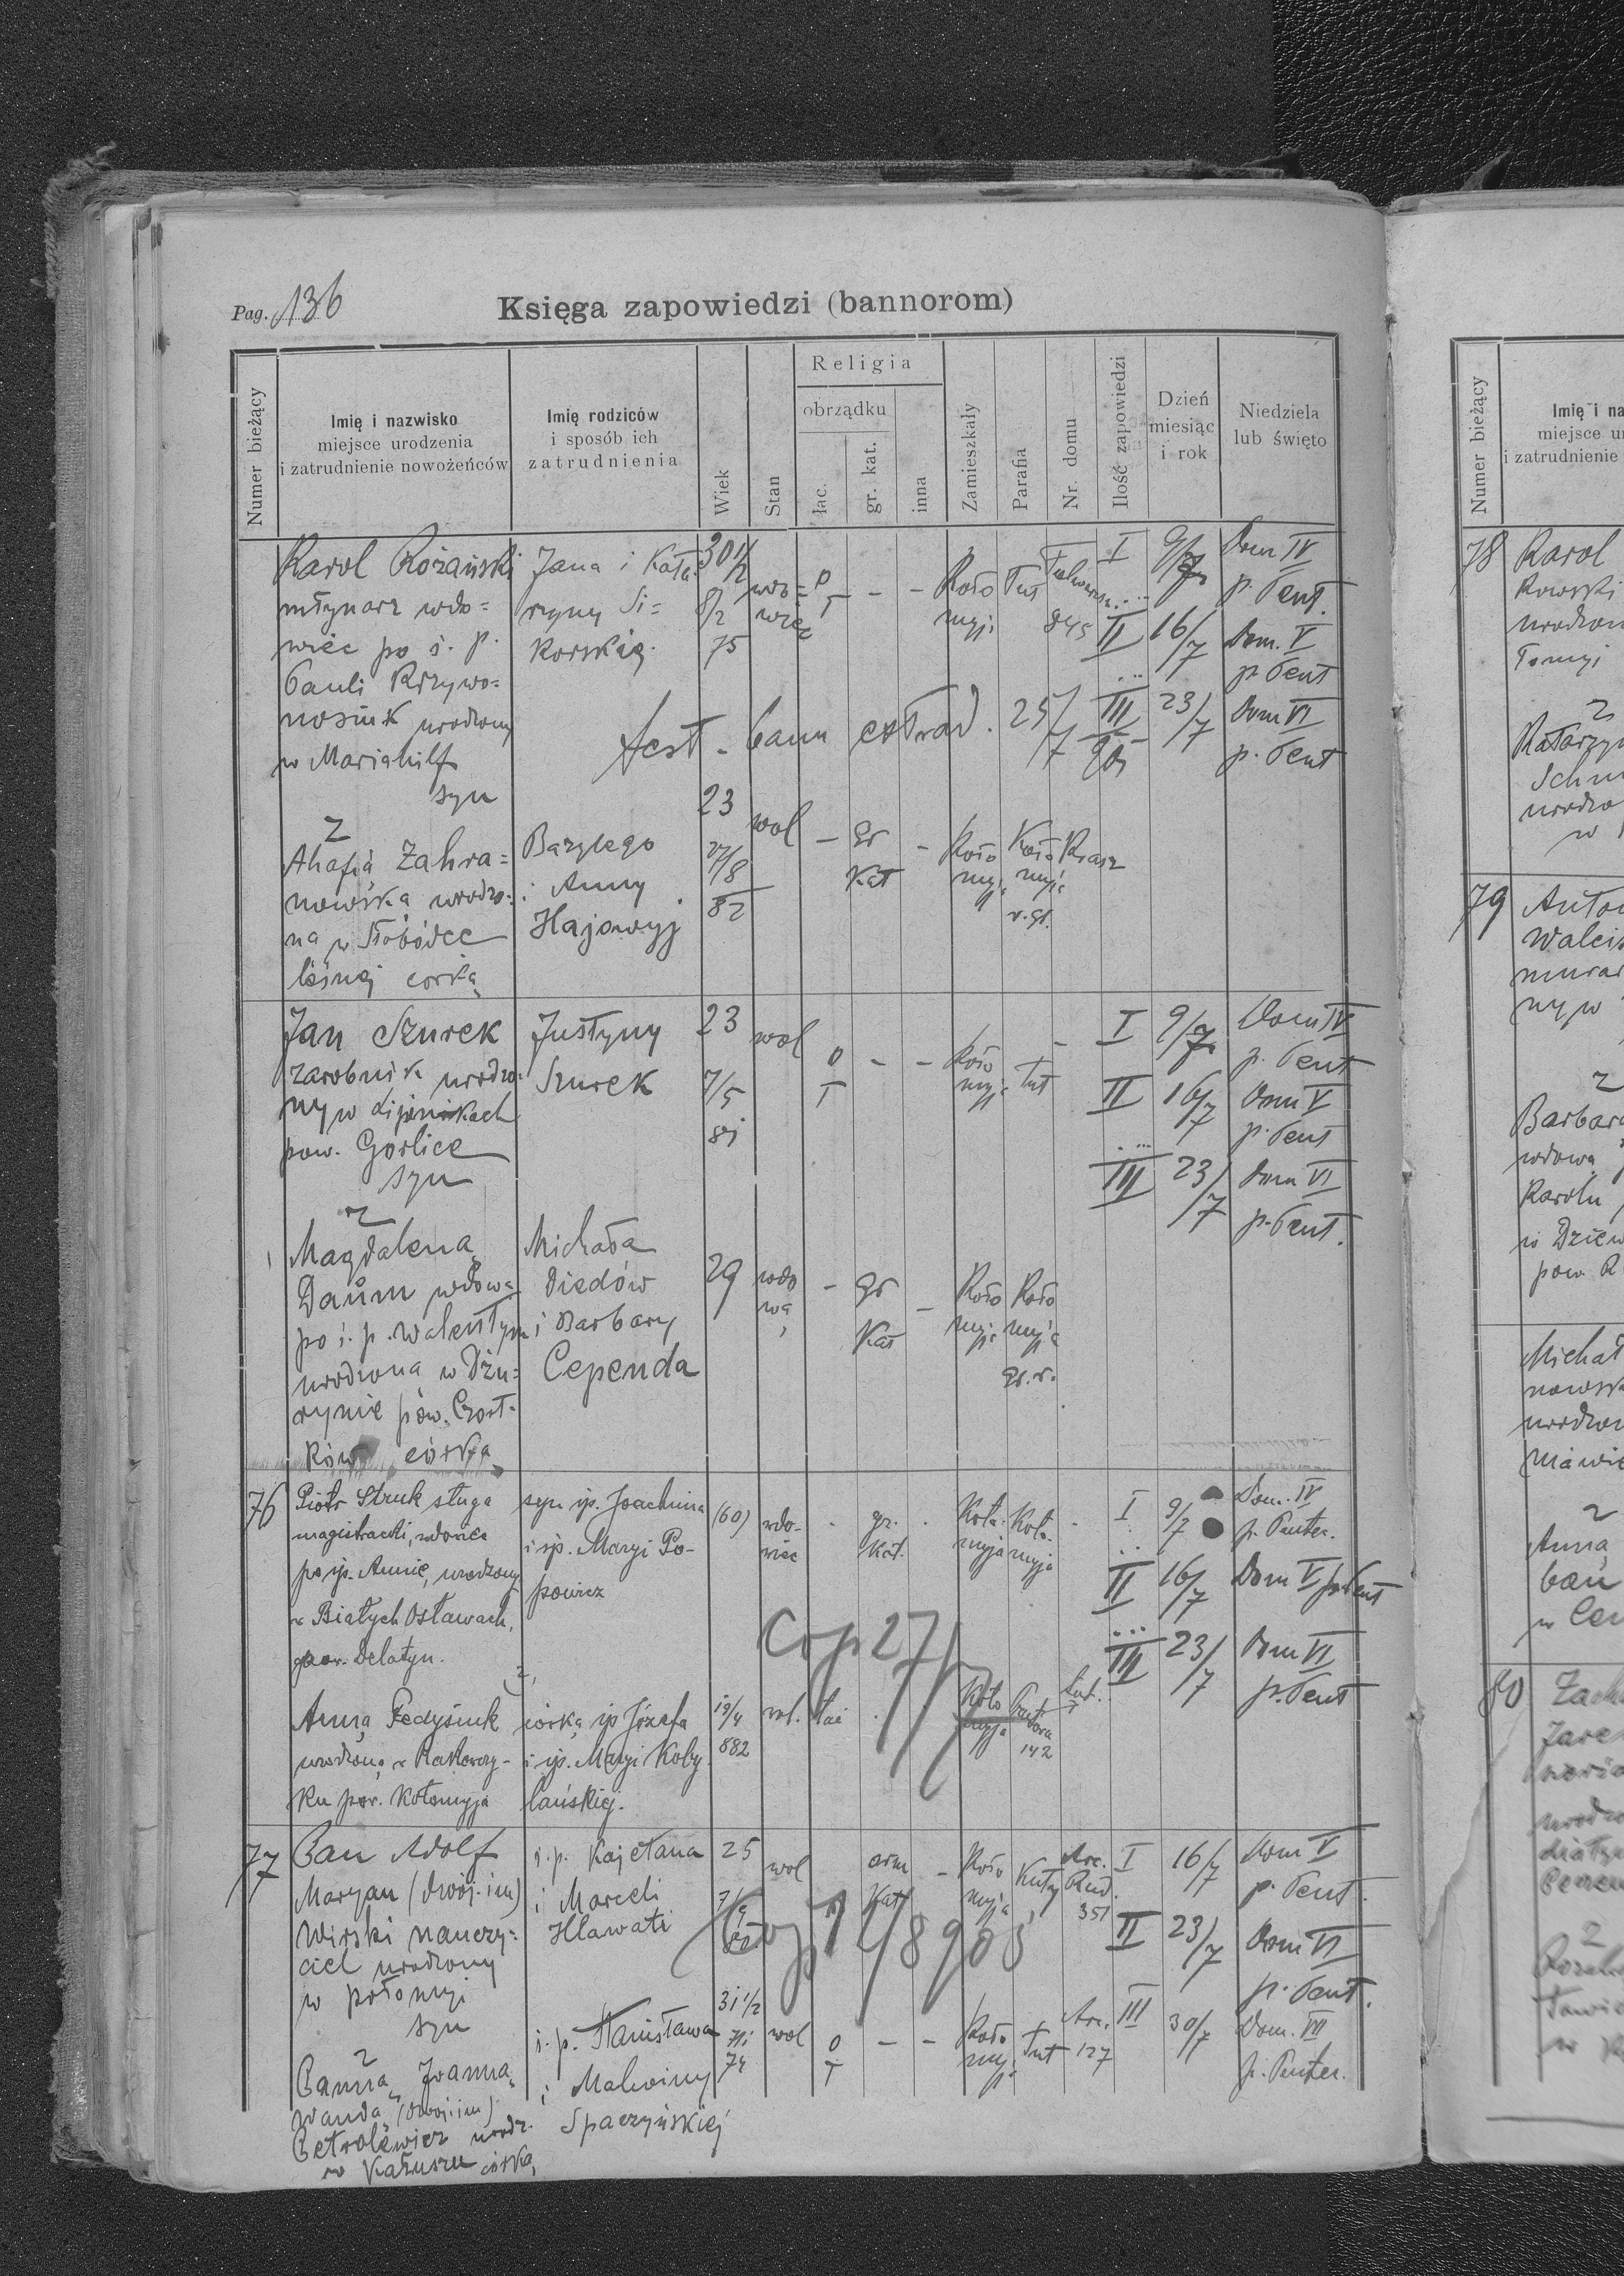 Pag. 136
Księga zapowiedzi (bannorom)
Numer bieżący
Imię i nazwisko
miejsce urodzenia
i zatrudnienie nowożeńców
Imię rodziców
i sposób ich
zatrudnienia
Wiek
Stan
Religia
obrządku
łac.
gr. kat.
inna
Zamieszkały
Parafia
Nr. domu
Ilość zapowiedzi
Dzień
miesiąc
i rok
Niedziela
lub święto
Karol Różański
młynarz wdo=
wiec po ś. p.
Pauli Krzywo=
nosiuk urodzony
w Mariahilf
syn
Jana i Kata=
rzyny Si=
korskiej
30 1/2
8/2
75
wdo=
wiec
o
T
-
-
Koło
myji
Tut
845
I
9/7
Dom IV
p. Pent.
II
16/7
Dom. V
p. Pent
III
23/7
Dom VI
p. Pent
test. bann extrad. 25/7
905
z
Ahafią Zahra=
nowską urodzo=
ną w Słobódce
leśnej córką
Bazylego
i Anny
Hajowyj
23
27/8
82
wol
-
gr
Kat
-
Koło
myja
Koło
myja
r. gr.
Jan Szurek
zarobnik urodzo=
ny w Lipinkach
pow. Gorlice
syn
Justyny
Szurek
23
7/5
wol
o
T
-
-
Koło
myji
Tut
-
I
9/7
Dom IV
p. Pent
II
16/7
Dom V
p. Pent
III
23/7
Dom VI
p. Pent.
z
Magdaleną
Daum wdową
po ś. p. Walentym
urodzoną w Dżu=
rynie pow. Czort=
ków córką
Michała
Diedów
i Barbary
Cependa
29
wdo
wa
-
gr
Kat
-
Koło
myja
Koło
myja
gr. r.
76
Piotr Struk sługa
magistracki, wdowiec
po śp. Annie, urodzony
w Białych Osławach,
pow. Delatyn.
syn śp. Joachima
i śp. Maryi Po-
powicz
(60)
wdo-
wiec
gr.
kat.
Koło-
myja
Koło-
myja
I
9/7
Dom. IV
p. Penter.
II
16/7
Dom V p. Pent
III
23/7
Dom VI
p. Pent
Cop 27/7
z
Anną Fedysiuk
urodzoną w Rakowczy-
ku pow. Kołomyja
córką śp Józefa
i śp. Maryi Koby
lańskiej.
19/4
882
wol.
łać
Koło
myja
142
tut.
77
Pan Adolf
Maryan (dwoj. im)
Wirski nauczy=
ciel urodzony
w Kołomyji
syn
ś. p. Kajetana
i Marceli
Hlawati
25
7/9
wol
orm
Kat
-
Koło
myja
Kuty
351
I
16/7
Dom V
p. Pent.
II
23/7
Dom VI
p. Pent.
III
30/7
Dom. VII
p. Penter.
Cop 1/8 905
z
Panną Joanną
Wandą (dwoj. im)
Petrolewicz urodz.
w Kałuszu córką
ś. p. Stanisława
i Malwiny
Spaczyńskiej
31 1/2
74
wol
o
T
-
-
Koło
myji
Tut
127
Numer bieżący
Imię i na
miejsce ur
i zatrudnienie
78
Karol
kowski
urodzon
z
Katarzy
Schm
urodzo
w
79
Anton
Walcis
murar
ny w
z
Barbar
wdową
Karolu
w Dźw
pow. K
Michał
nowsk
urodzon
z
Anną
ban
w Cen
80
Zach
z